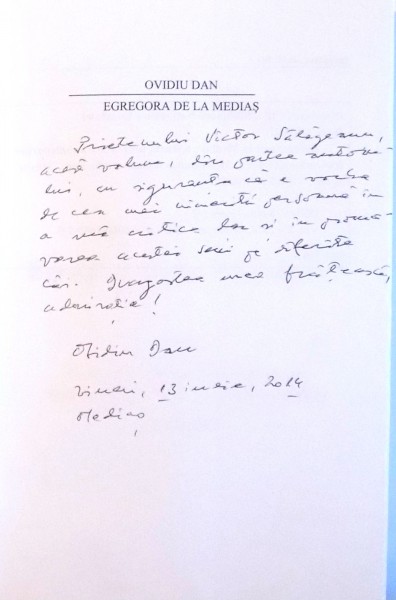 OVIDIU DAN
EGREGORA DE LA MEDIAȘ
Prietenului Victor Sălăgeanu,
acest volum, din partea autoru-
lui, cu siguranța că e vorba
de cea mai persoană în
a critica dar și în promo-
varea acestei și diferite
căi. Dragostea mea frățească,
admirație!
Ovidiu Dan
Vineri, 13 iunie, 2014
Mediaș